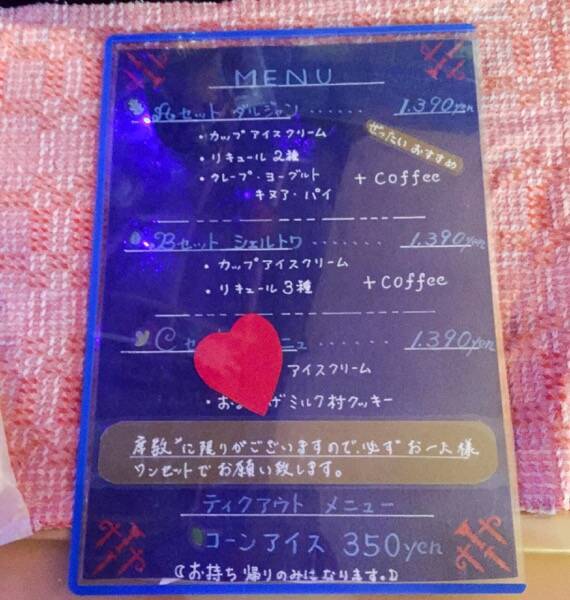 MENU
Aセット ダルジャン ...... 1.390yen
・カップアイスクリーム
ぜったい おすすめ
・リキュール2種
・クレープ・ヨーグルト + Coffee
キヌア・パイ
Bセット シェルトワ ....... 1.390yen
・カップアイスクリーム
・リキュール3種 + Coffee
Cセ ニュ ...... 1.390yen
アイスクリーム
・お げミルク村クッキー
席数に限りがございますので、必ずお一人様
ワンセットでお願い致します。
ティクアウト メニュー
コーンアイス 350yen
(お持ち帰りのみになります。)